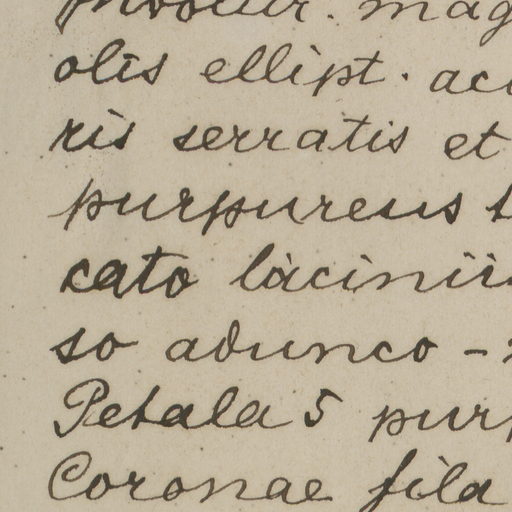 olis ellipt. acu
ris serratis et
purpureus
cato laciniis
so adunco -
Petala 5 purp
Coronae fila